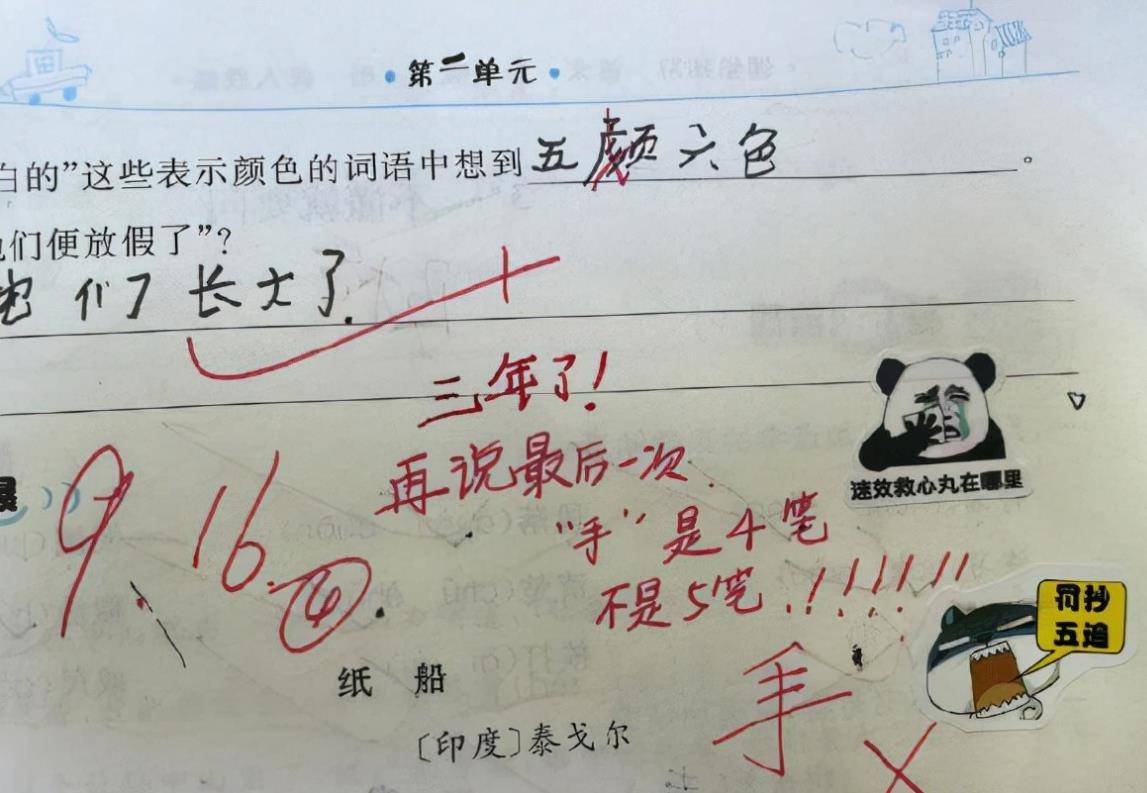 ·第二单元·
白的”这些表示颜色的词语中想到五颜六色。
们便放假了”?
们了长大了.
三年了!
再说最后一次.
速效救心丸在哪里
“手”是4笔
9.16.④.
不是5笔.!!!!!!
罚抄
五遍
纸 船
手 ×
〔印度〕泰戈尔